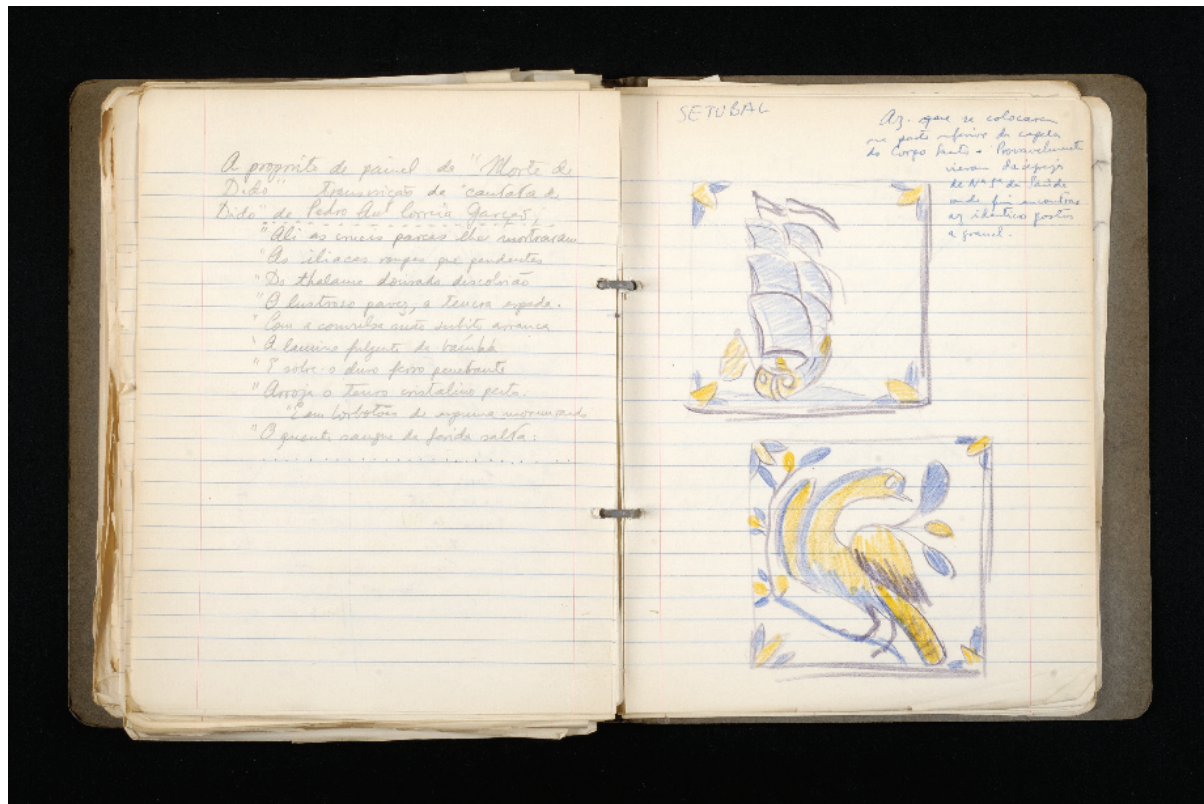 A proposito do painel da "Morte de
Dido" transcrição da "cantata de
Dido" de Pedro Ant Correia Garção,
"Ali as crueis parcas lhe mostraram
"As iliacas roupas que pendentes
"Do thalamo dourado descobrião
"O lustroso pavez, a teucra espada.
"Com a convulsa mão subito arranca
"A lamina fulgente da bainha
"E sobre o duro ferro penetrante
"Arroja o tenro cristalino peito.
"E em borbotões de espuma murmurando
"O quente sangue da ferida salta:
SETUBAL
Az. que se colocaram
na parte inferior da capela
do Corpo Santo. Provavelmente
vieram da igreja
de Nª Sª da Saude
onde fui encontrar
az identicos postos
a granel.